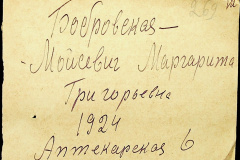 Бобровская—
Мойсевич Маргарита
Григорьевна
1924
Аптекарская 6